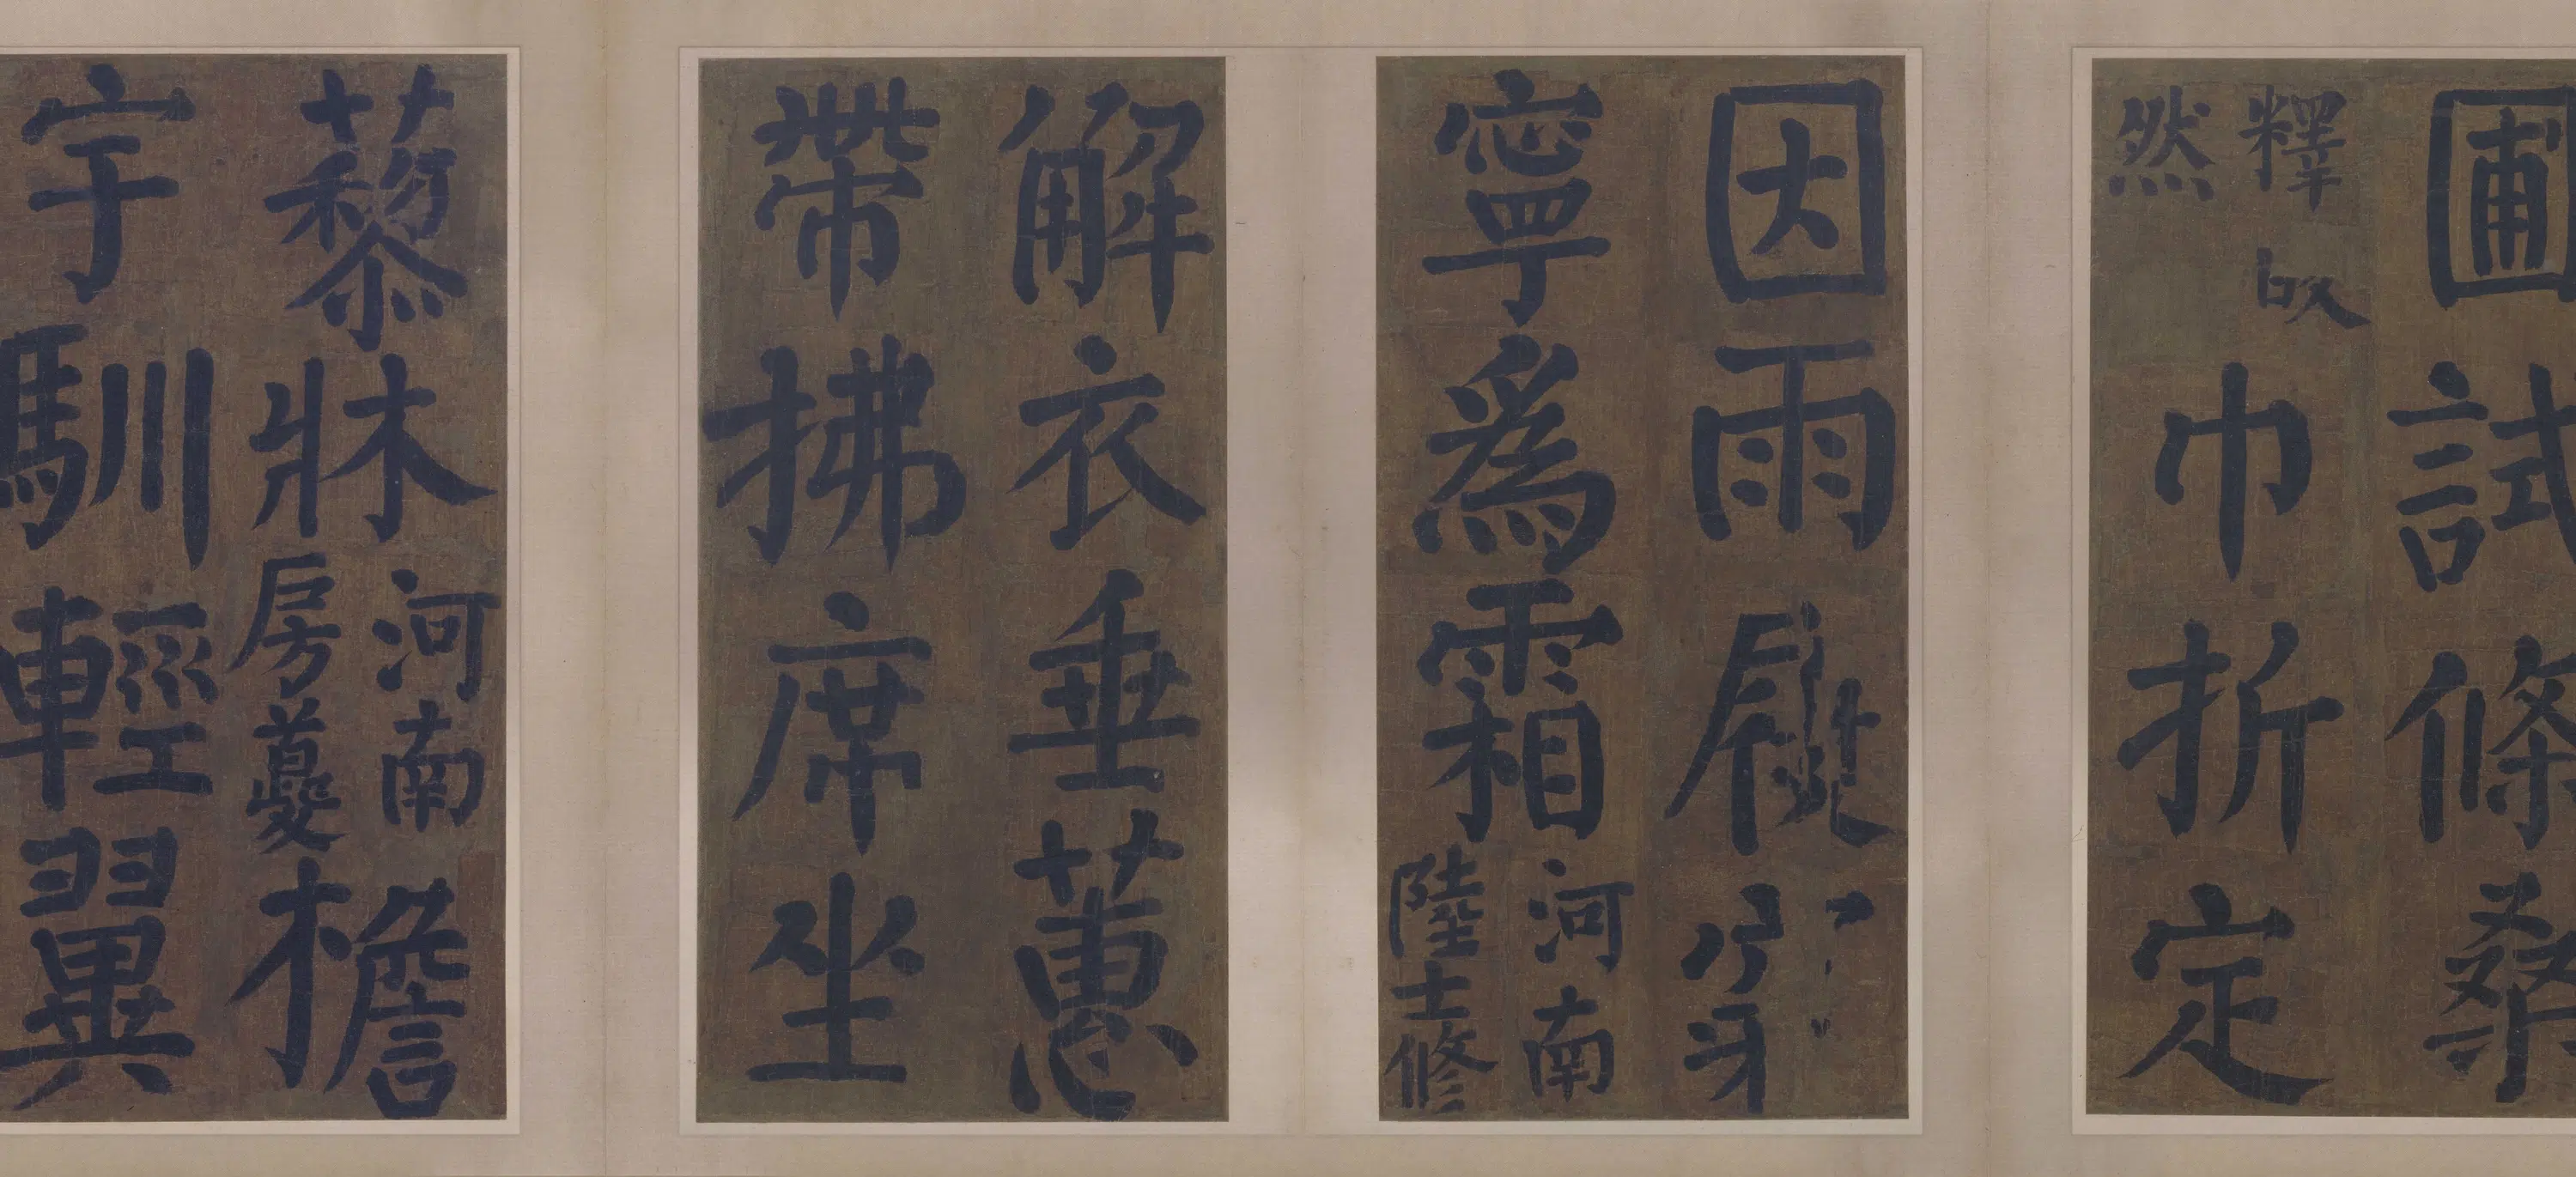 圃試條桒
釋
然
巾折定
因雨履穿
寧爲霜
河南
陸士修
解衣垂蕙
帶拂席坐
藜牀
河南
房夔
檐
宇馴輕翼